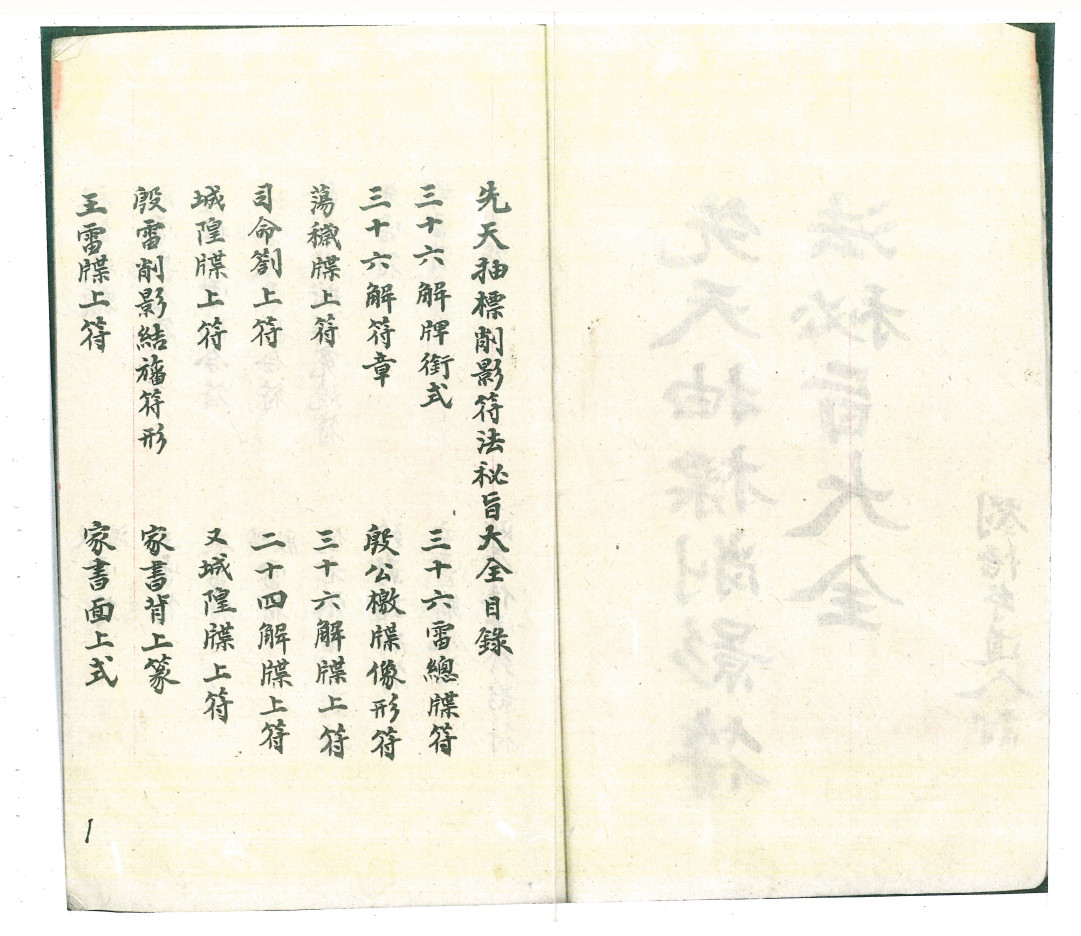 先天抽標削影符法秘旨大全目錄
三十六解牌銜式
三十六雷總牒符
三十六解符章
殷公檄牒像形符
蕩穢牒上符
三十六解牒上符
司命劄上符
二十四解牒上符
城隍牒上符
又城隍牒上符
殷雷削影結旛符形
家書背上篆
王雷牒上符
家書面上式
1